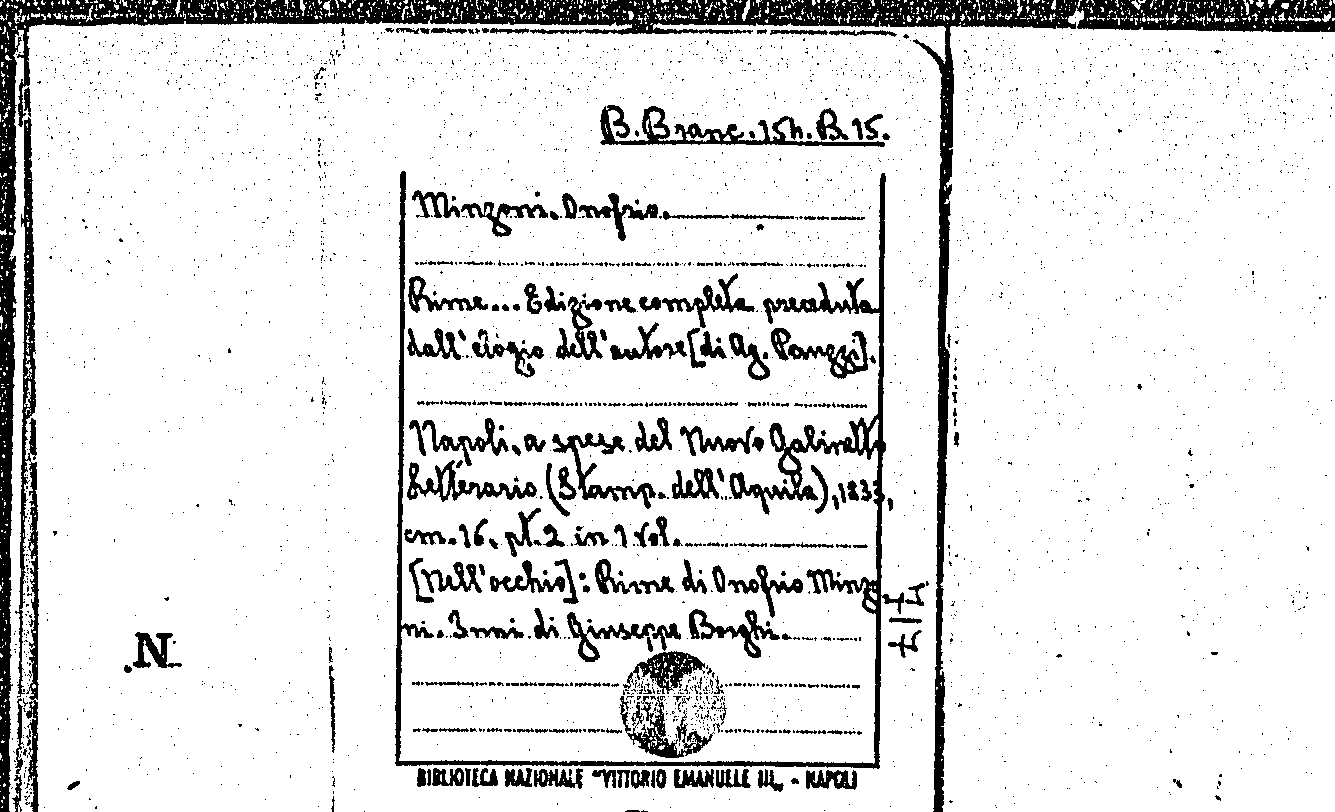 B. Branc. 15h. B. 15.
Minzoni. Onofrio.
Rime... Edizione completa preceduta
dall' elogio dell' autore [di Ag. Panzzi].
Napoli, a spese del Nuovo Gabinetto
Letterario (Stamp. dell' Aquila), 1833,
cm. 16, pt. 2 in 1 vol.
[Nell'occhio]: Rime di Onofrio Minzo
ni. Inni di Giuseppe Borghi.
N.
BIBLIOTECA NAZIONALE "VITTORIO EMANUELE III„ - NAPOLI